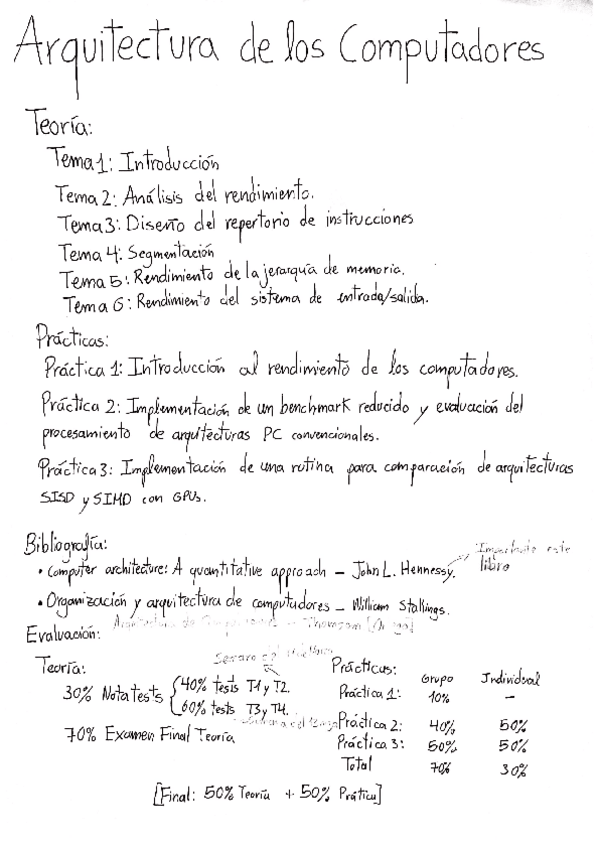 Arquitectura de los Computadores
Teoría:
Tema 1: Introducción
Tema 2: Análisis del rendimiento.
Tema 3: Diseño del repertorio de instrucciones
Tema 4: Segmentación
Tema 5: Rendimiento de la jerarquía de memoria.
Tema 6: Rendimiento del sistema de entrada/salida.
Prácticas:
Práctica 1: Introducción al rendimiento de los computadores.
Práctica 2: Implementación de un benchmark reducido y evaluación del
procesamiento de arquitecturas PC convencionales.
Práctica 3: Implementación de una rutina para comparación de arquitecturas
SISD y SIMD con GPUs.
Bibliografía:
Importante este
libro
• Computer architecture: A quantitative approach – John L. Hennessy.
• Organización y arquitectura de computadores – William Stallings.
Evaluación:
Teoría:
30% Nota tests
40% tests T1 y T2.
60% tests T3 y T4.
70% Examen Final Teoría
Prácticas: Grupo Individual
Práctica 1: 10% –
Práctica 2: 40% 50%
Práctica 3: 50% 50%
Total 70% 30%
[Final: 50% Teoría + 50% Prática]